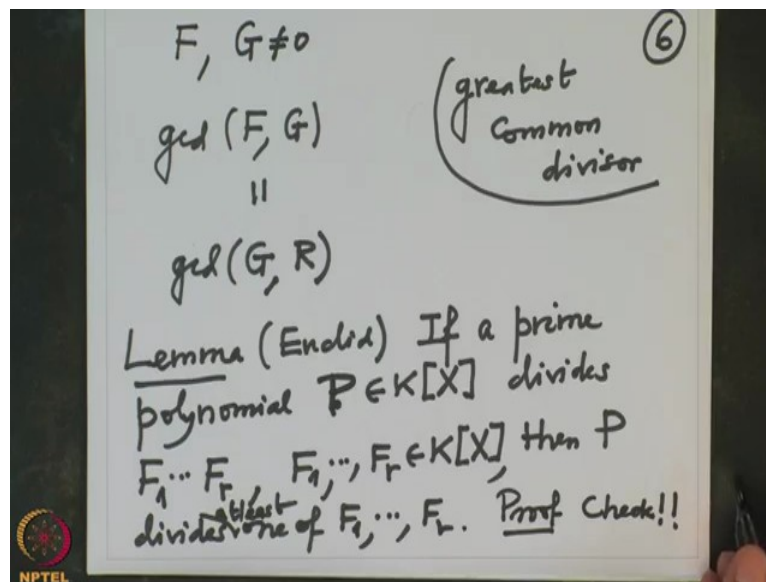 F, G≠0
⑥
gcd (F, G)
||
gcd (G, R)
(greatest
common
divisor
Lemma (Euclid) If a prime
polynomial P ∈ K[X] divides
F₁⋯ Fᵣ, F₁,⋯, Fᵣ ∈ K[X], then P
divides atleast one of F₁,⋯, Fᵣ. Proof Check!!
NPTEL